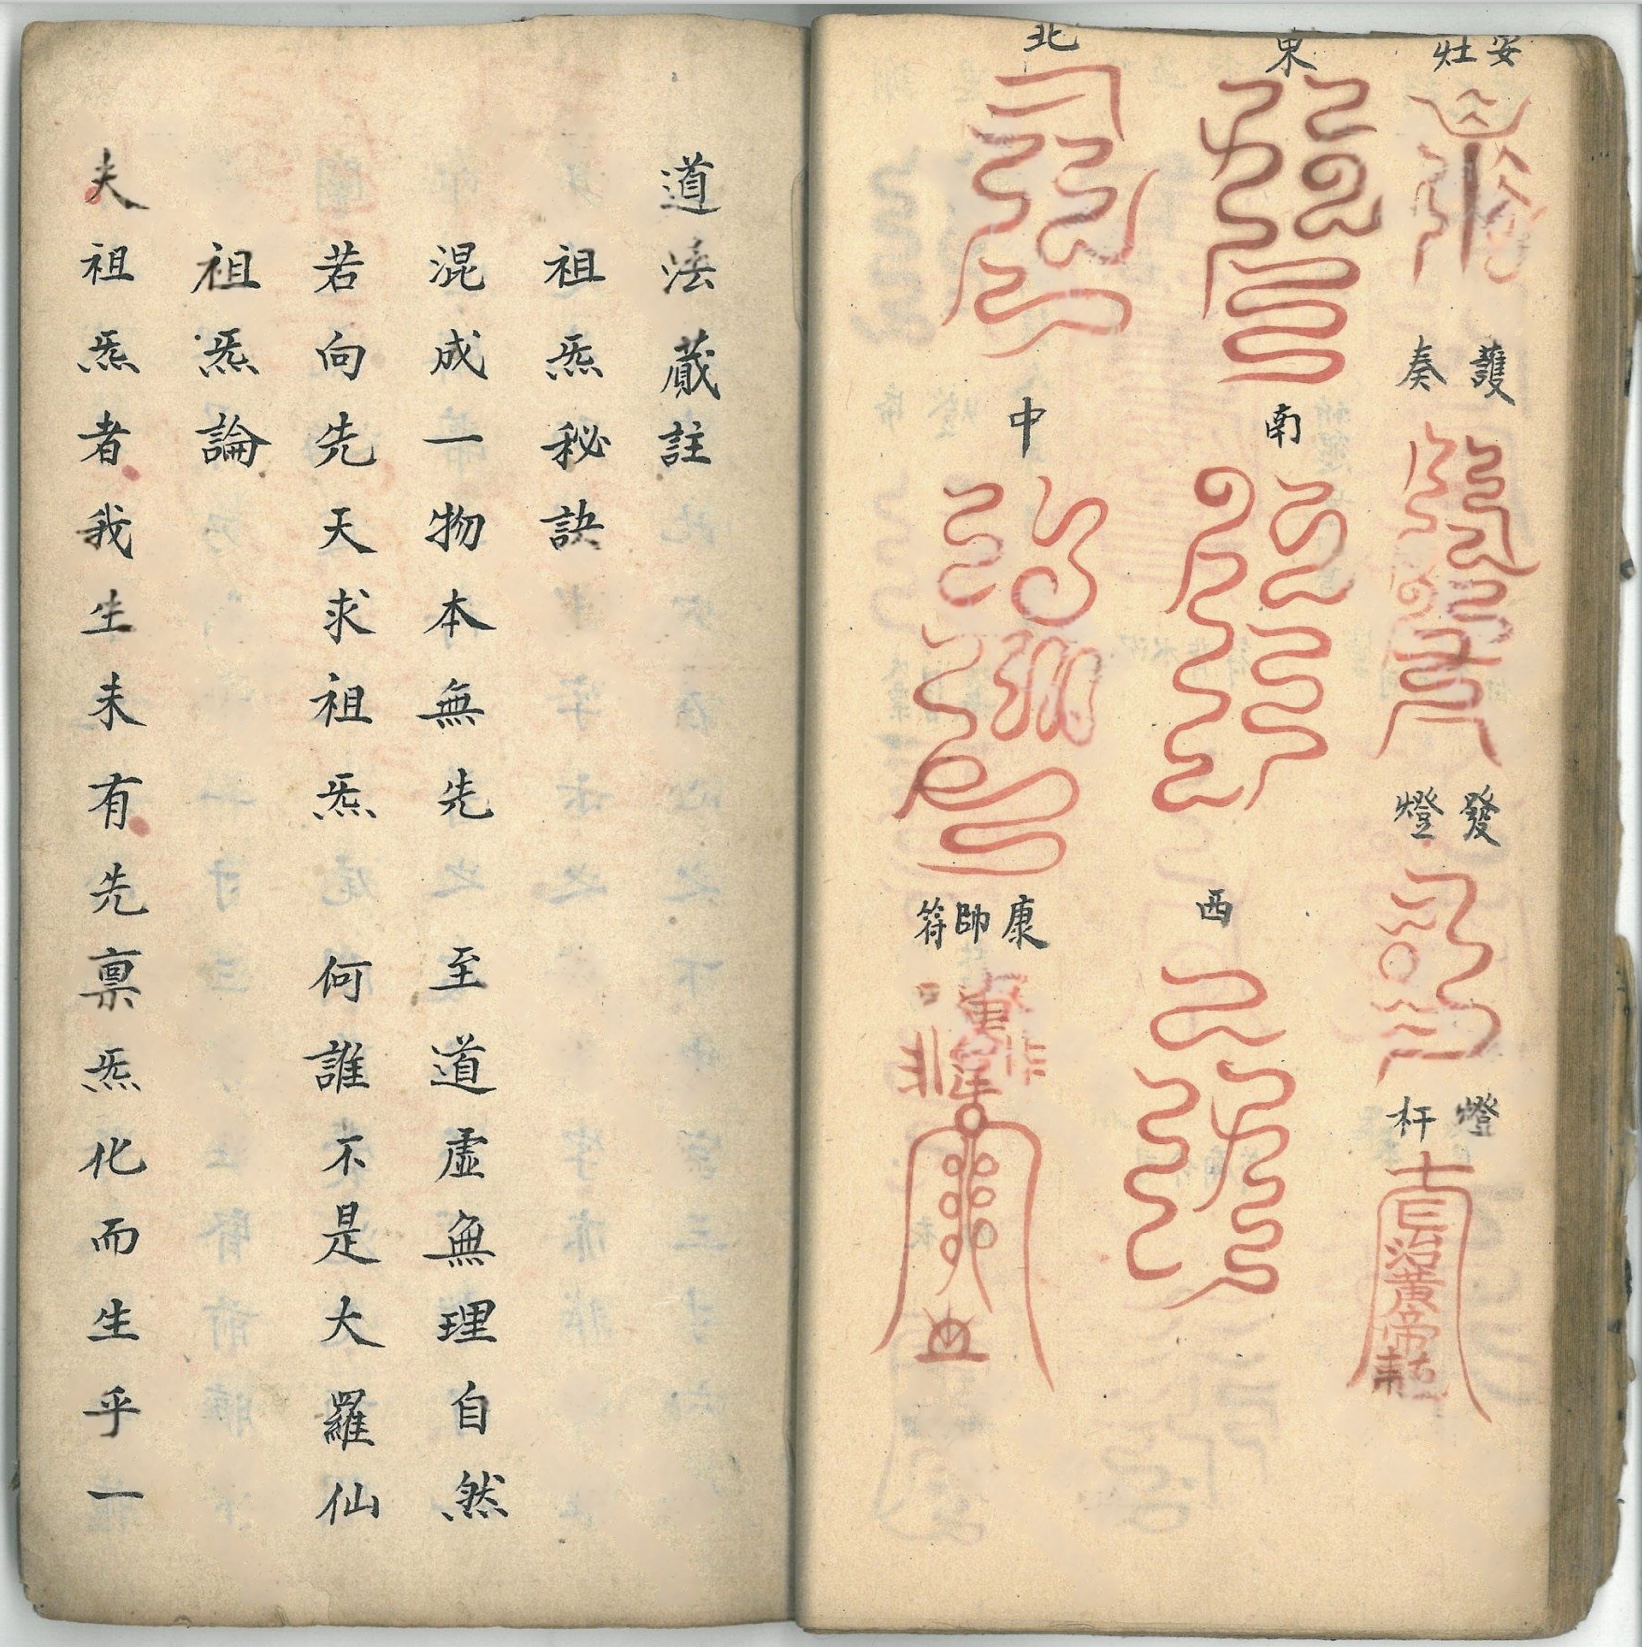 安灶
護奏
發燈
燈杆
治黃帝
東
南
西
北
中
康帥符
道法藏註
祖炁秘訣
混成一物本無先 至道虚無理自然
若向先天求祖炁 何誰不是大羅仙
祖炁論
夫祖炁者我生未有先禀炁化而生乎一